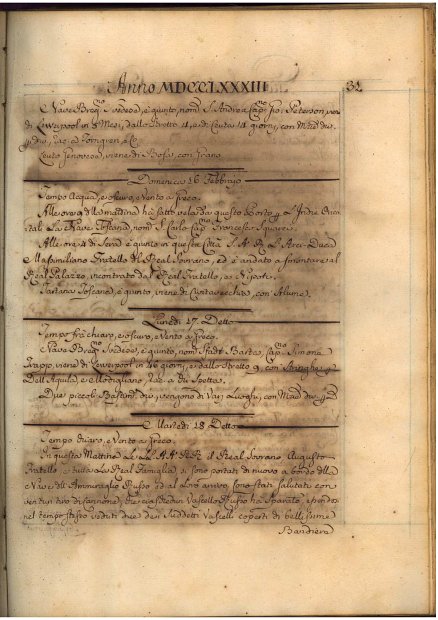 Anno MDCCLXXXIII
32
Nave Svedese, è giunto, nom.a S. Andrea Cap.no Peterson, viene
di Liverpool in 3 Mesi, dallo Stretto 4, e di Ceuta 11 giorni, con
Leuto Genovese, viene di Bosa con Grano
Domenica 16 Febbrajo
Tempo Acqua, e oscuro, e Vento a Greco.
Alle ore 9 di Mattina ha fatto vela da questo Porto p l'Indie Orien
tali La Nave Toscana, nom.a S. Carlo Cap.no Francesco
Alle ore di Sera è giunto in questa Città S. A. R. L'Arci-Duca
Massimiliano Fratello del Real Sovrano, ed è andato a smontare al
Real Palazzo, incontrato dal Real Fratello, e Nipoti.
Tartana Toscana, è giunto, viene di Civitavecchia, con Alume.
Lunedì 17. Detto
Tempo frà chiaro, e oscuro, Vento a Greco.
Nave Svedese, è giunto, nom.a Stadt Cap.no Simone
viene di Liverpool in 40 giorni, e dallo Stretto 9, con Aringhe p
Dell'Aquila, e Modigliano
Due piccoli Bastim. vengono di Varj Luoghi, con
Martedì 18 Detto
Tempo chiaro, e Vento a Greco.
In questa Mattina Le LL. AA. RR. il Real Sovrano Augusto
Fratello, e tutta La Real Famiglia, si sono portati di nuovo a bordo della
Nave dell'Ammiraglio Russo ed al Loro arrivo sono stati salutati con
venti un tiro di cannone, che ciaschedun Vascello Russo ha sparato,
nel tempo stesso veduti i suddetti Vascelli coperti di bellissime
Bandiere